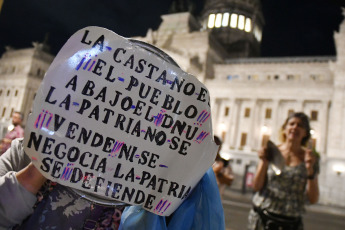 LA CASTA-NO-E
¡¡¡EL-PUEBLO!!!
A BAJOELDNU¡
LA-PATRIA-NO-SE
¡¡¡VENDE¡NI-SE-
NEGOCIA LA-PATRIA
SE-DEFIENDE!!!